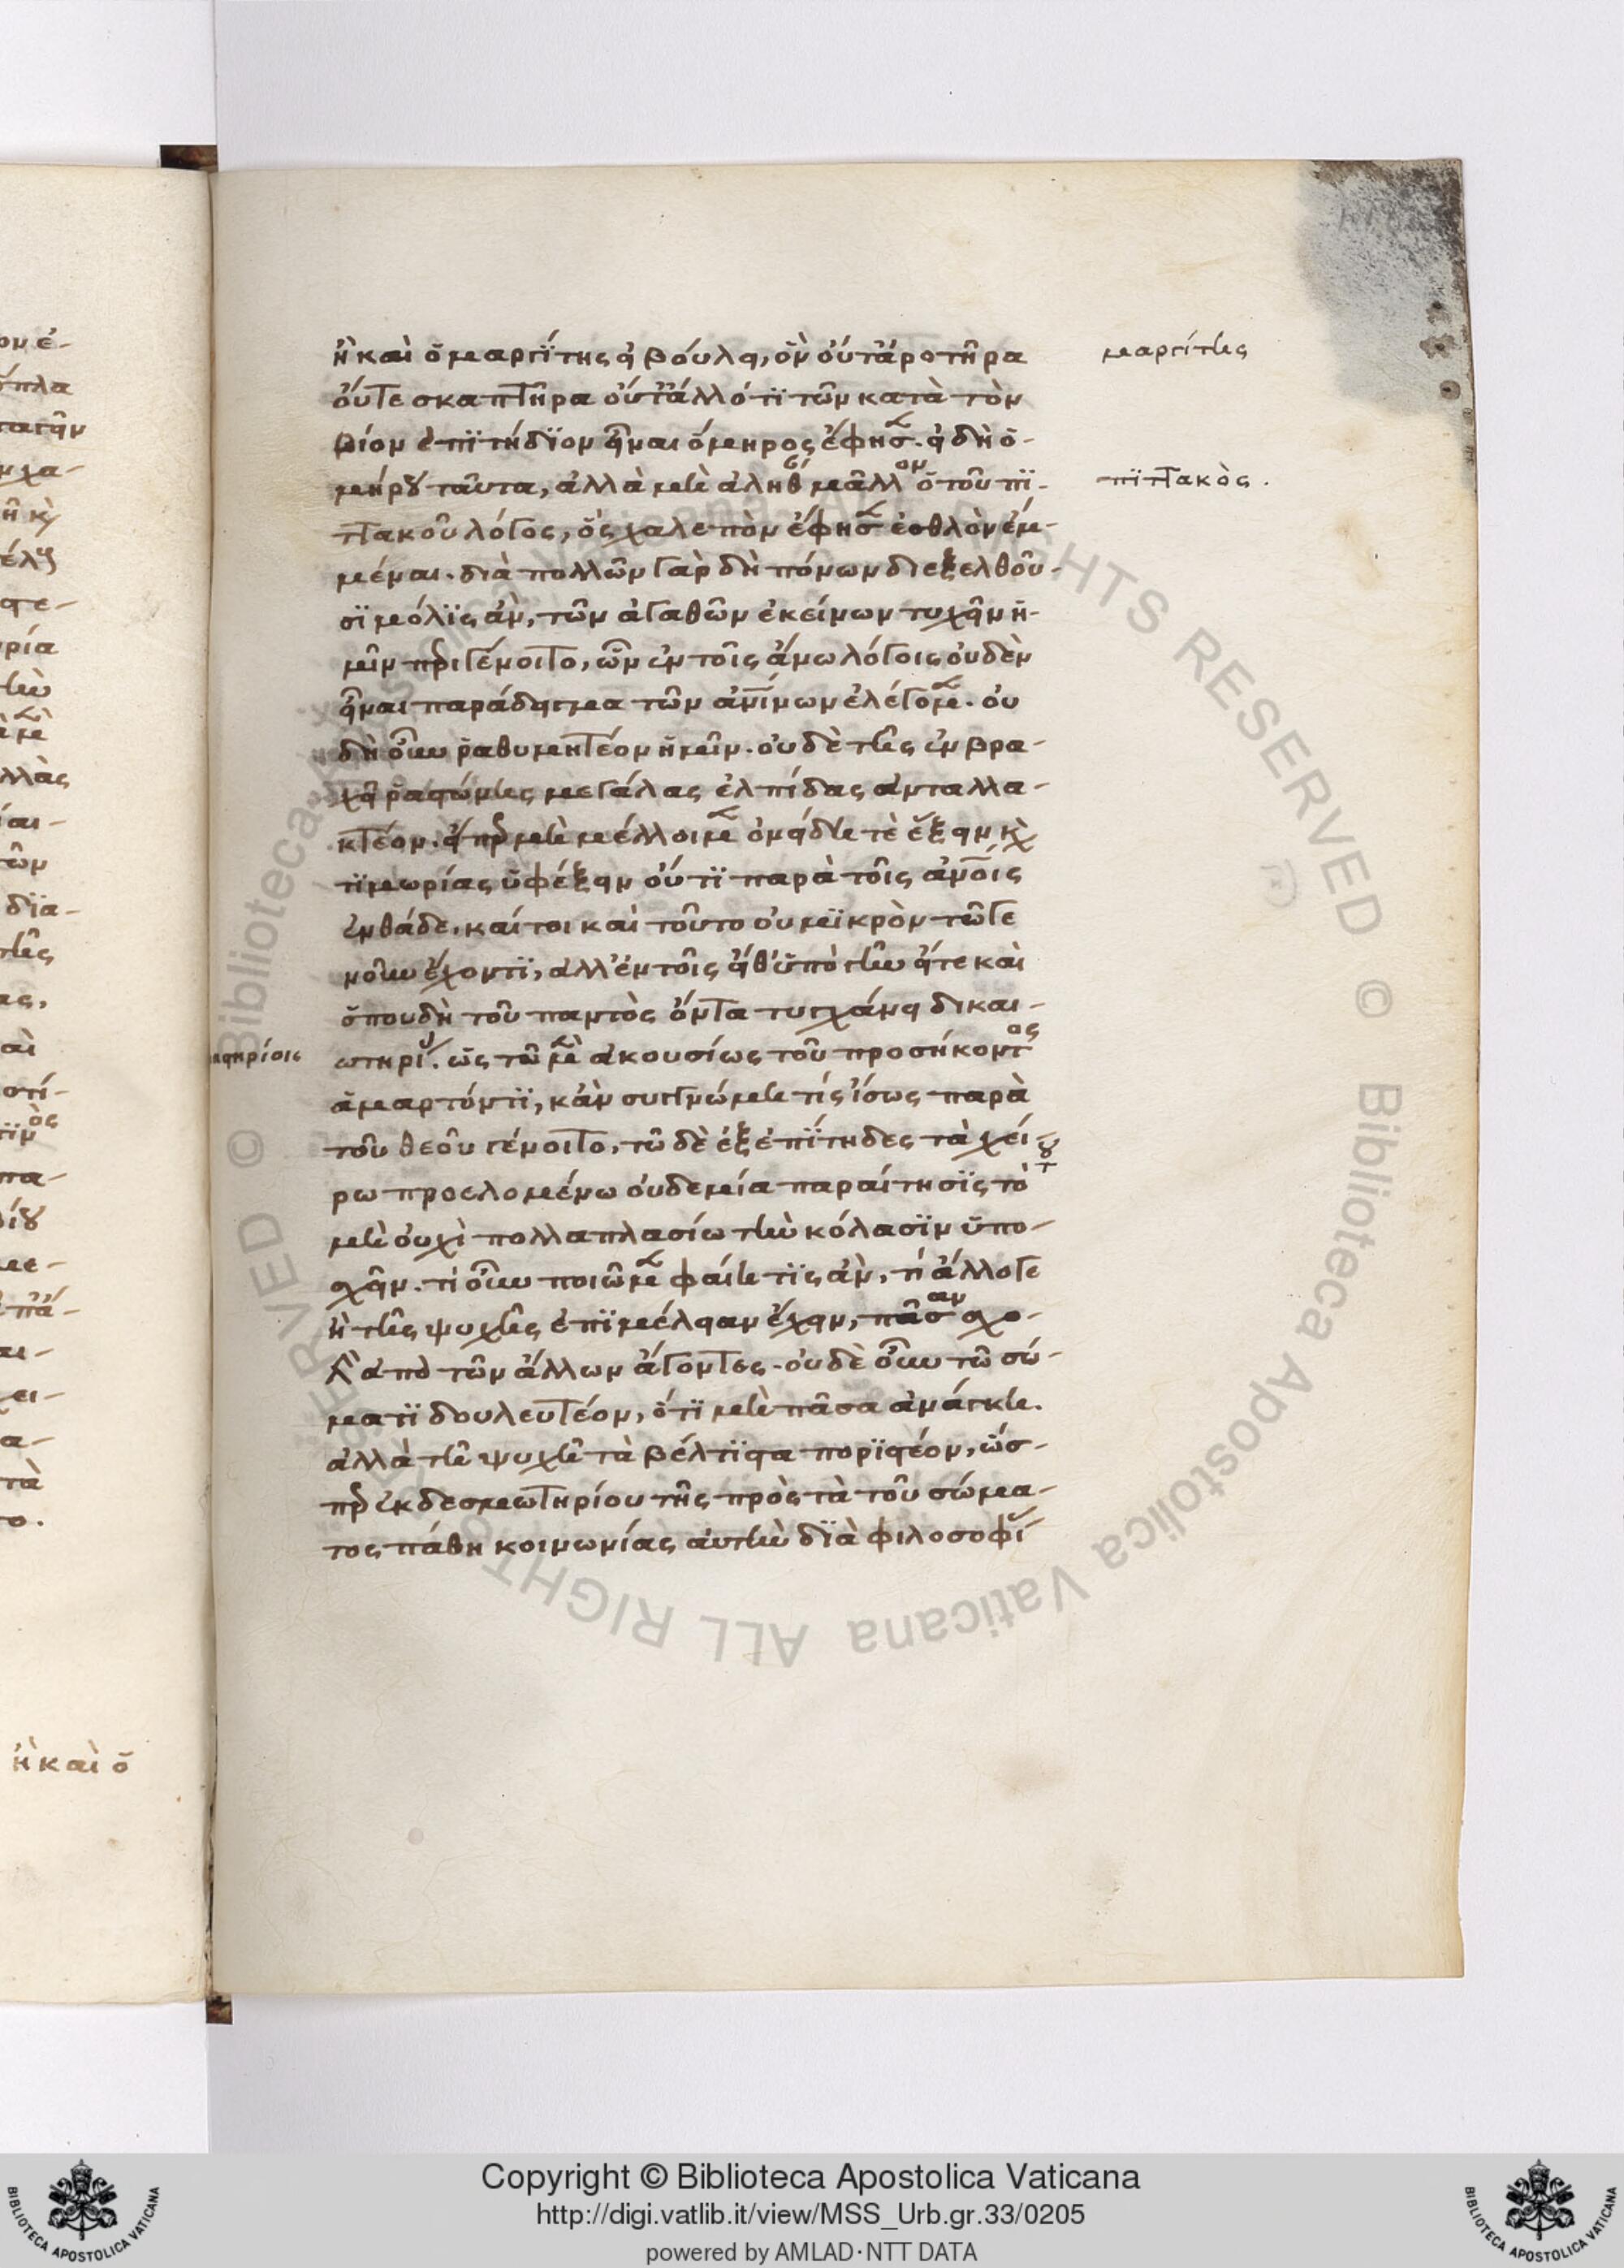 ἢ καὶ ὁ μαργίτης εἰ βούλει, ὃν οὔτ' ἀροτῆρα
οὔτε σκαπτῆρα οὔτ' ἄλλό τι τῶν κατὰ τὸν
βίον ἐπιτήδιον εἶναι ὅμηρος ἔφησεν. εἰ δὴ ὁ-
μήρου ταῦτα, ἀλλὰ μὴ ἀληθὴς μᾶλλον ὁ τοῦ πι-
ττακοῦ λόγος, ὃς χαλεπὸν ἔφησεν ἐσθλὸν ἔμ-
μεναι. διὰ πολλῶν γὰρ δὴ πόνων διεξελθοῦ-
σι μόλις ἂν, τῶν ἀγαθῶν ἐκείνων τυχεῖν ἡ-
μῖν περιγένοιτο, ὧν ἐν τοῖς ἄνω λόγοις οὐδὲν
εἶναι παράδειγμα τῶν ἀνίνων ἐλέγομεν. οὐ
δὴ οὖν ῥαθυμητέον ἡμῖν. οὐδὲ τῆς ἐν βρα-
χεῖ ῥαστώνης μεγάλας ἐλπίδας ἀνταλλα-
κτέον. εἴπερ μὴ μέλλοιμεν ὀνείδη τὲ ἕξειν καὶ
τιμωρίας ὑφέξειν οὔτι παρὰ τοῖς ἀνοις
ἐνθάδε. καίτοι καὶ τοῦτο οὐ μικρὸν τῶ γε
νοῦν ἔχοντι, ἀλλ' ἐν τοῖς εἴθ' ὑπὸ γῆν εἴτε καὶ
ὅπου δὴ τοῦ παντὸς ὄντα τυγχάνει δικαι-
ωτηρίοις. ὡς τῶ μὲν ἀκουσίως τοῦ προσήκοντος
ἁμαρτόντι, κἂν συγγνώμη τίς ἴσως παρὰ
τοῦ θεοῦ γένοιτο, τῶ δὲ ἐξεπίτηδες τὰ χεί-
ρω προελομένω οὐδεμία παραίτησις τὸ
μὴ οὐχὶ πολλαπλασίω τὴν κόλασιν ὑπο-
σχεῖν. τί οὖν ποιῶμεν φαίη τις ἂν, τί ἄλλο γε
ἢ τῆς ψυχῆς ἐπιμέλειαν ἔχειν, πᾶσαν σχο-
λὴν ἀπὸ τῶν ἄλλων ἄγοντες. οὐδὲ οὖν τῶ σώ-
ματι δουλευτέον, ὅτι μὴ πᾶσα ἀνάγκη.
ἀλλὰ τῆ ψυχῆ τὰ βέλτιστα ποριστέον, ὥσ-
περ ἐκ δεσμωτηρίου τῆς πρὸς τὰ τοῦ σώμα-
τος πάθη κοινωνίας αὐτὴν διὰ φιλοσοφίας
μαργίτης
πιττακὸς.
ἢ καὶ ὁ
Copyright © Biblioteca Apostolica Vaticana
http://digi.vatlib.it/view/MSS_Urb.gr.33/0205
powered by AMLAD·NTT DATA